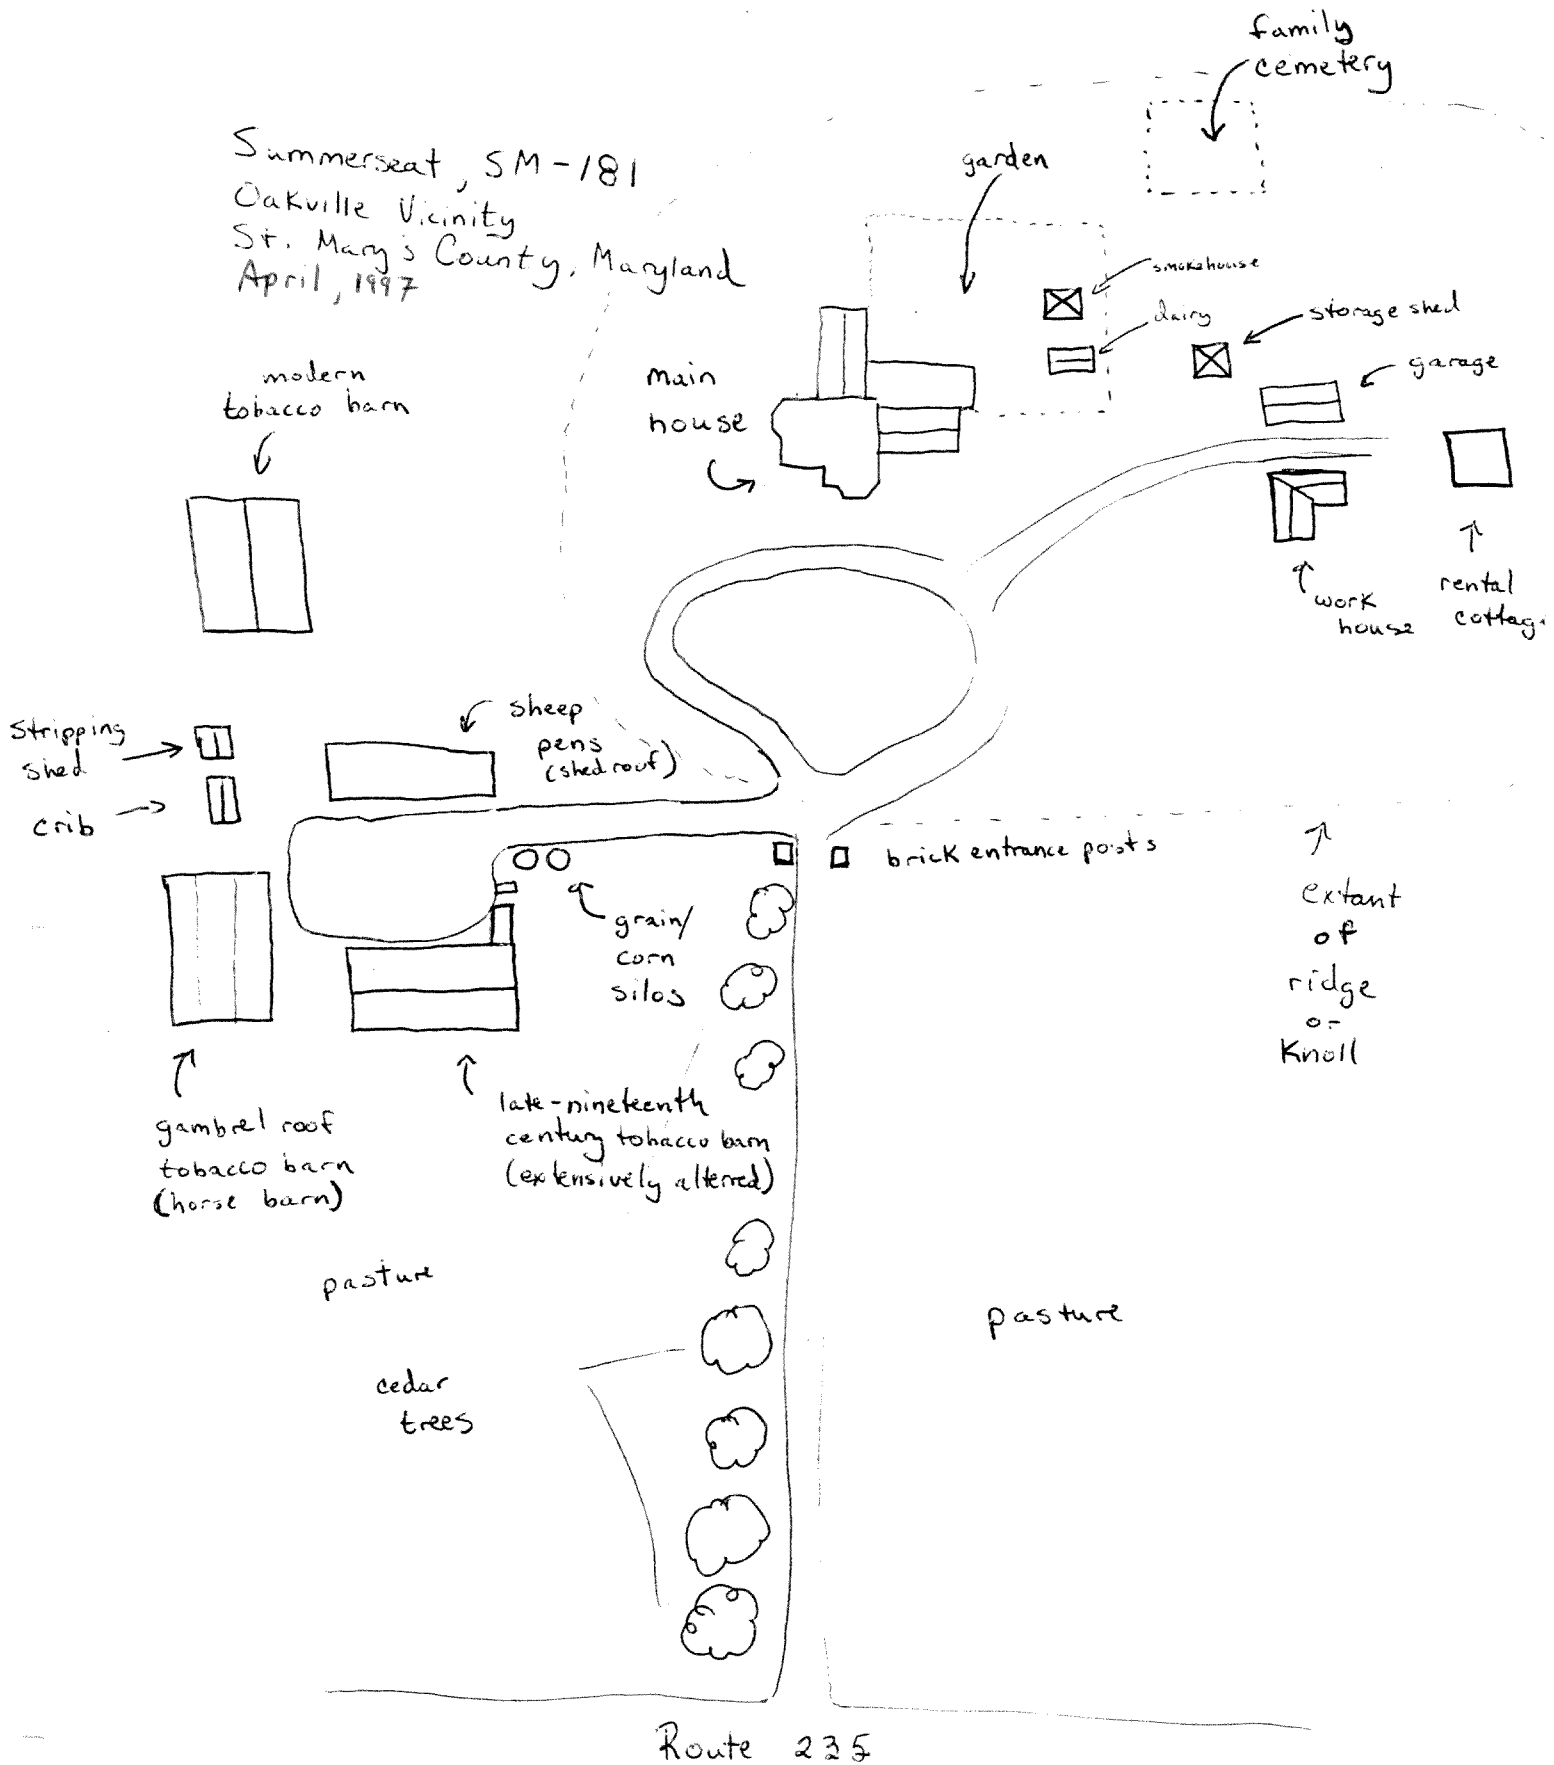 family
cemetery
Summerseat, SM-181
Oakville Vicinity
St. Mary's County, Maryland
April, 1997
garden
smokehouse
dairy
storage shed
garage
main
house
modern
tobacco barn
work
house
rental
cottag
stripping
shed
crib
sheep
pens
(shed roof)
brick entrance posts
extant
of
ridge
or
Knoll
grain/
corn
silos
gambrel roof
tobacco barn
(horse barn)
late-nineteenth
century tobacco barn
(extensively altered)
pasture
pasture
cedar
trees
Route 235